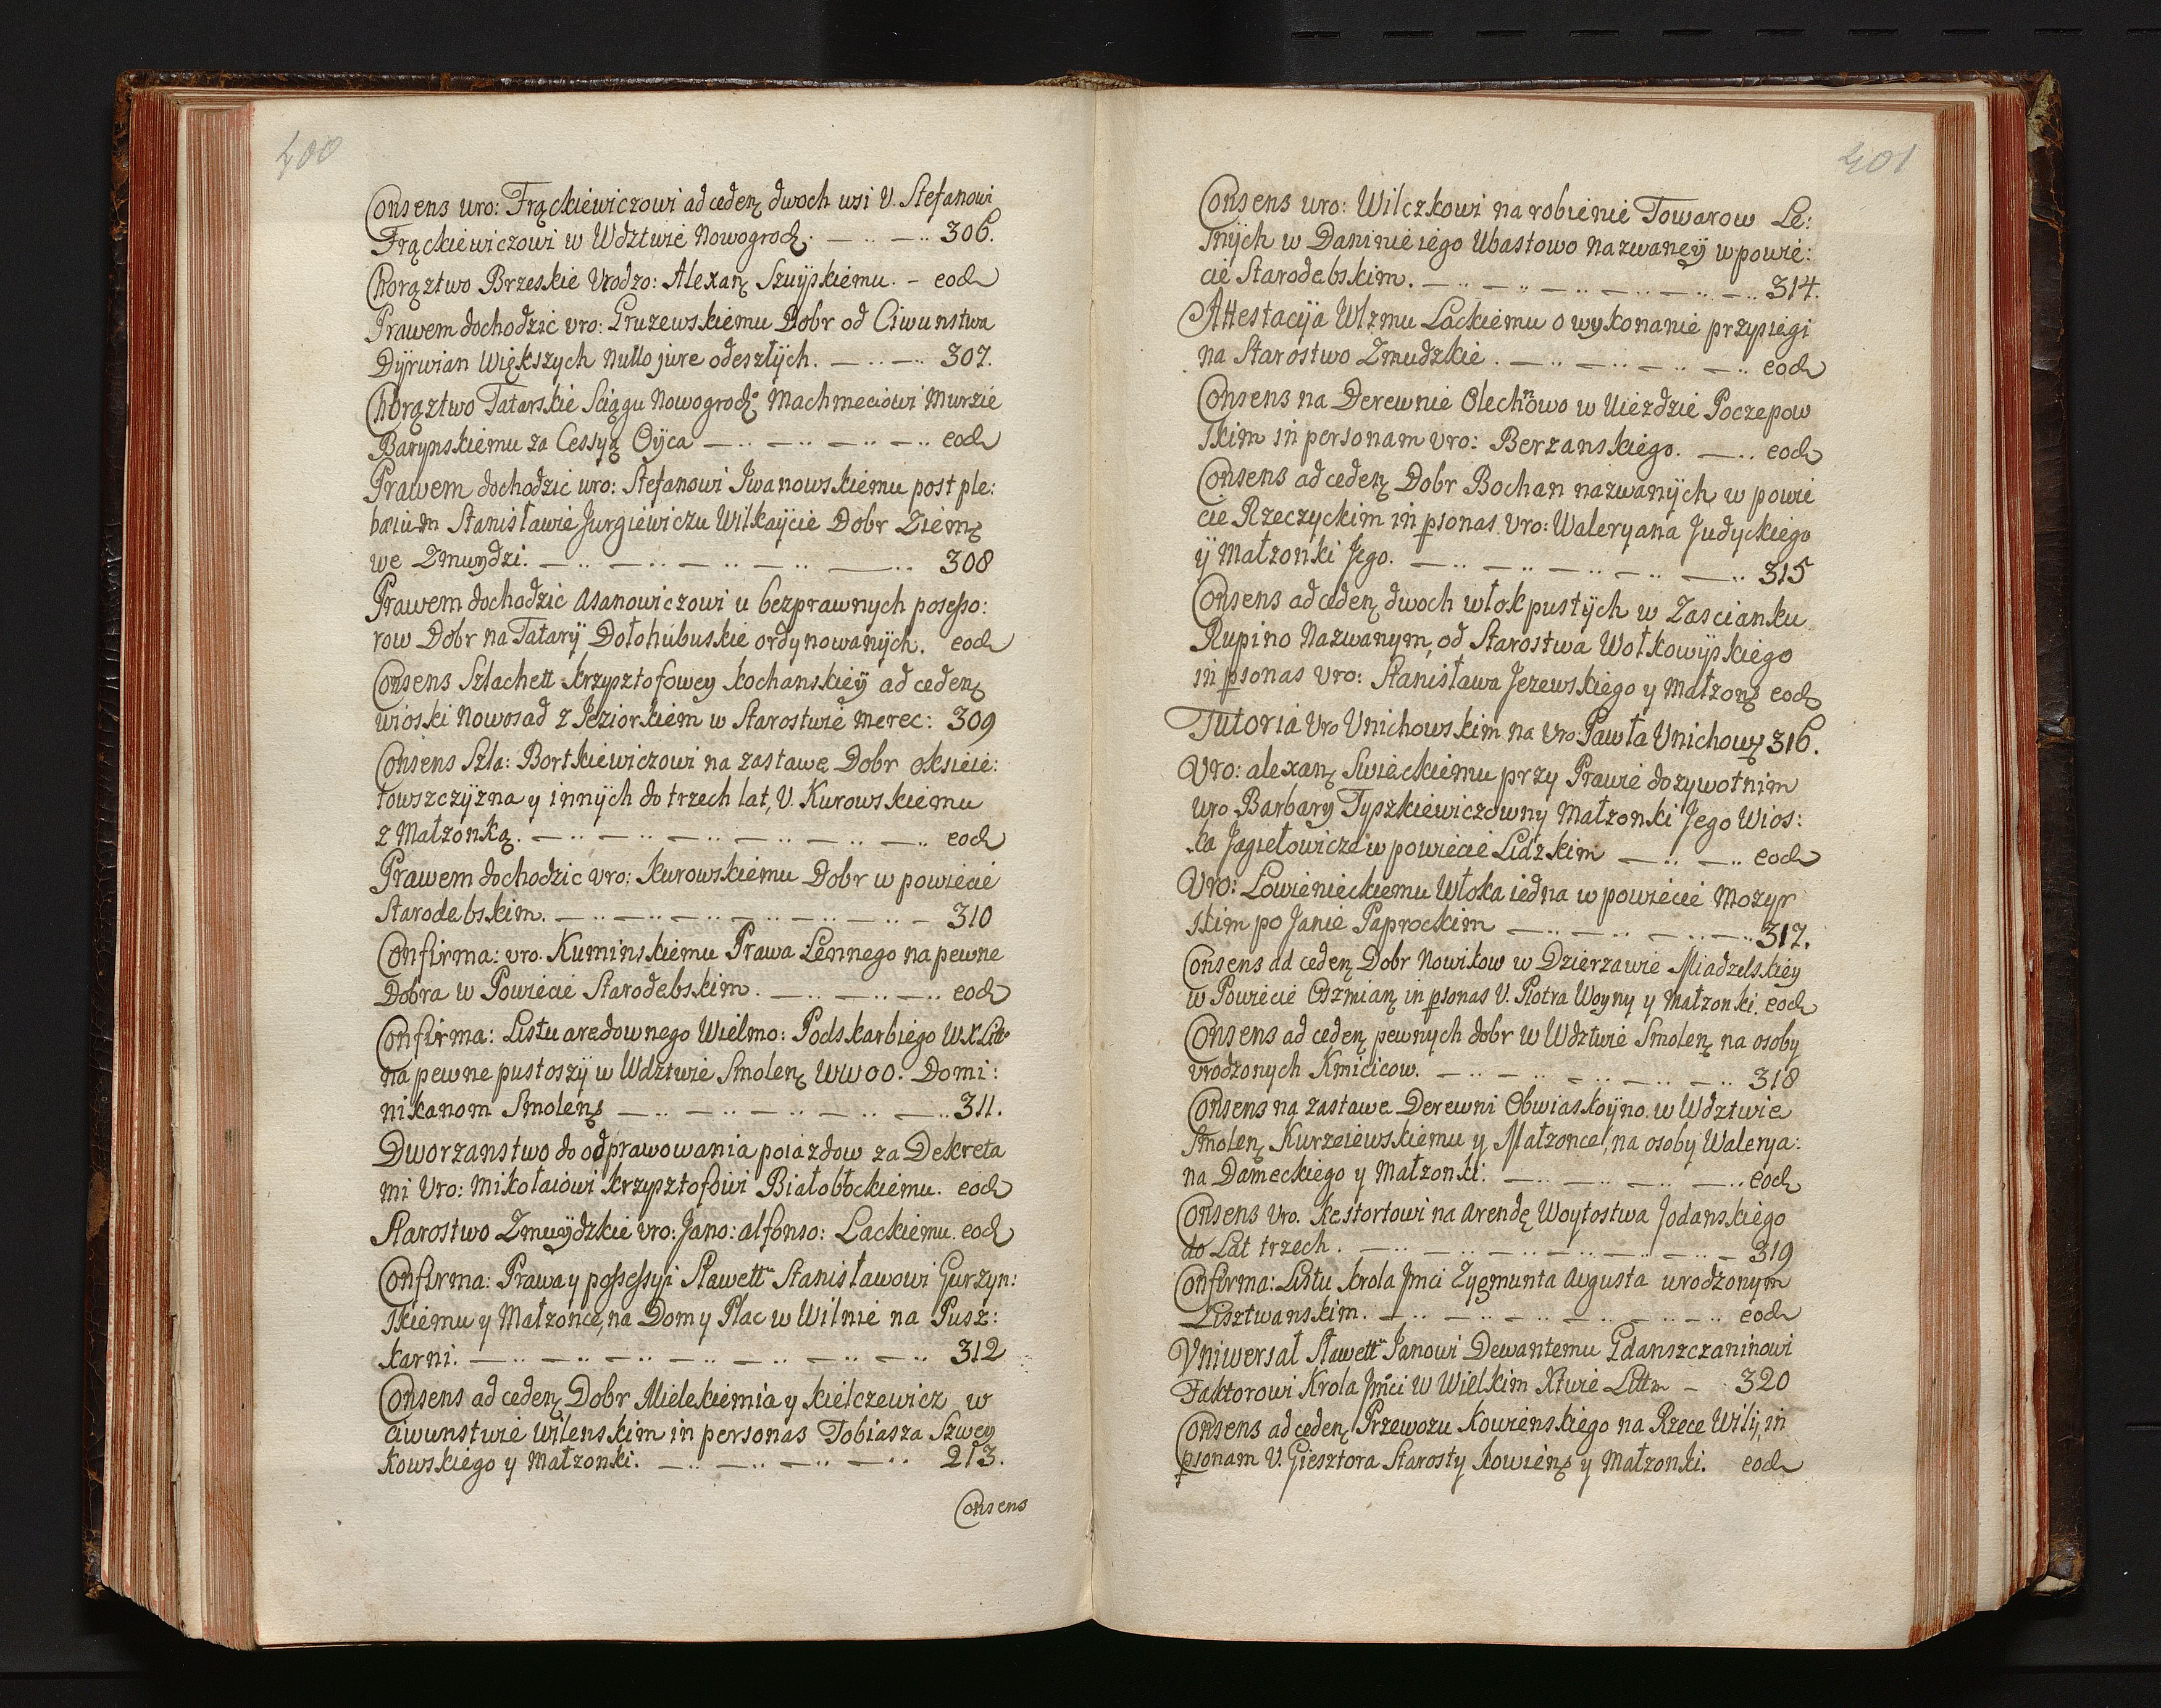 400
Consens uro: Frąckiewiczowi ad ceden dwoch wsi V. Stefanowi
Frąckiewiczowi w Wdztwie Nowogrod. — .. — .. 306.
Chorąztwo Brzeskie Vrodzo: Alexan Szuyskiemu. – eod
Prawem dochodzic vro: Gruzewskiemu Dobr od Ciwunstwa
Dyrwian Większych nullo jure odeszłych. — .. — .. 307.
Chorąztwo Tatarskie Sciągu Nowogrod: Machmeciowi Murzie
Barynskiemu za Cessyą Oyca — .. — .. — .. — .. eod
Prawem dochodzic uro: Stefanowi Jwanowskiemu post ple:
baeium Stanisławie Jurgiewiczu Wilkaycie Dobr Ziem
we Zmuydzi. — .. — .. — .. — .. — .. 308
Prawem dochodzic Asanowiczowi u bezprawnych possesso:
row Dobr na Tatary Dołohubuskie ordynowanych. eod
Consens Szlachett Krzysztofowey Kochanskiey ad ceden
wioski Nowosad z Jeziorkiem w Starostwie Merec: 309
Consens Szla: Bortkiewiczowi na zastawę Dobr oksieie:
towszczyzna y innych do trzech lat, V. Kurowskiemu
z Małzonką. — .. — .. — .. — .. — .. — .. eod
Prawem dochodzic vro: Kurowskiemu Dobr w powiecie
Starodebskim. — .. — .. — .. — .. — .. — .. – 310
Confirma: vro. Kuminskiemu Prawa Lennego na pewne
Dobra w Powiecie Starodebskim. — .. — .. — .. eod
Confirma: Listu aredownego Wielmo: Podskarbiego WXLitt
na pewne pustoszy w Wdztwie Smolen WWOO. Domi:
nikanom Smolen — .. — .. — .. — .. — .. 311.
Dworzanstwo do odprawowania poiazdow za Dekreta
mi Vro: Mikołaiowi Krzysztofowi Białobłockiemu. eod
Starostwo Zmuydzkie vro: Jano: alfonso: Lackiemu. eod
Confirma: Prawa y possessyi Sławett Stanisławowi Gurzyn:
skiemu y Małzonce, na Dom y Plac w Wilnie na Pusz:
karni. — .. — .. — .. — .. — .. — .. — .. 312
Consens ad ceden Dobr Mielekiemia y Kielczewicz w
ciwunstwie Wilenskim in personas Tobiasza Szwey
kowskiego y Małzonki. — .. — .. — .. — .. 213.
Consens
401
Consens uro: Wilczkowi na robienie Towarow Le:
snych w Daninie iego Ubastowo nazwaney w powie:
cie Starodebskim. — .. — .. — .. — .. — .. — .. 314.
Attestacyja Wlzmu Lackiemu o wykonanie przysiegi
na Starostwo Zmudzkie. — .. — .. — .. — .. eod
Consens na Derewnie Olechnowo w Uiezdzie Poczepow
skim in personam vro: Berzanskiego. — .. eod
Consens ad ceden Dobr Bochan nazwanych w powie
cie Rzeczyckim in psonas vro: Waleryana Judyckiego
y Małzonki Jego. — .. — .. — .. — .. — .. 315
Consens ad ceden dwoch włok pustych w Zascianku
Rupino Nazwanym, od Starostwa Wołkowyskiego
in psonas vro: Stanisława Jezewskiego y Małzon eod
Tutoria Vro Unichowskim na Vro: Pawła Unichow 316.
Vro: alexan Swieckiemu przy Prawie dozywotnim
uro Barbary Tyszkiewiczowny Małzonki Jego Wios:
ka Jagiełowicze w powiecie Lidzkim — .. — .. eod
Vro: Lowienieckiemu Włoka iedna w powiecie Mozyr
skim po Janie Paprockim — .. — .. — .. — .. 317.
Consens ad ceden Dobr Nowikow w Dzierzawie Miadzelskiey
w Powiecie Oszmian in psonas V. Piotra Woyny y Małzonki. eod
Consens ad ceden pewnych dobr w Wdztwie Smolen na osoby
vrodzonych Kmicicow. — .. — .. — .. — .. — .. 318
Consens na zastawe Derewni Obwiaskoyno w Wdztwie
Smolen Kurzeiewskiemu y Małzonce, na osoby Walerya:
na Dameckiego y Małzonki. — .. — .. — .. — .. eod
Consens Vro. Kestortowi na Arendę Woytostwa Jodanskiego
do Lat trzech. — .. — .. — .. — .. — .. — .. – 319
Confirma: Listu Krola Jmci Zygmunta Augusta urodzonym
Lisztwanskim. — .. — .. — .. — .. — .. — .. eod
Vniwersał Sławett Janowi Dewantemu Gdanszczaninowi
Faktorowi Krola Jmci w Wielkim Xtwie Litt – 320
Consens ad ceden Przewozu Kowienskiego na Rzece Wilij, in
psonam V. Giesztora Starosty Kowien y Małzonki. eod